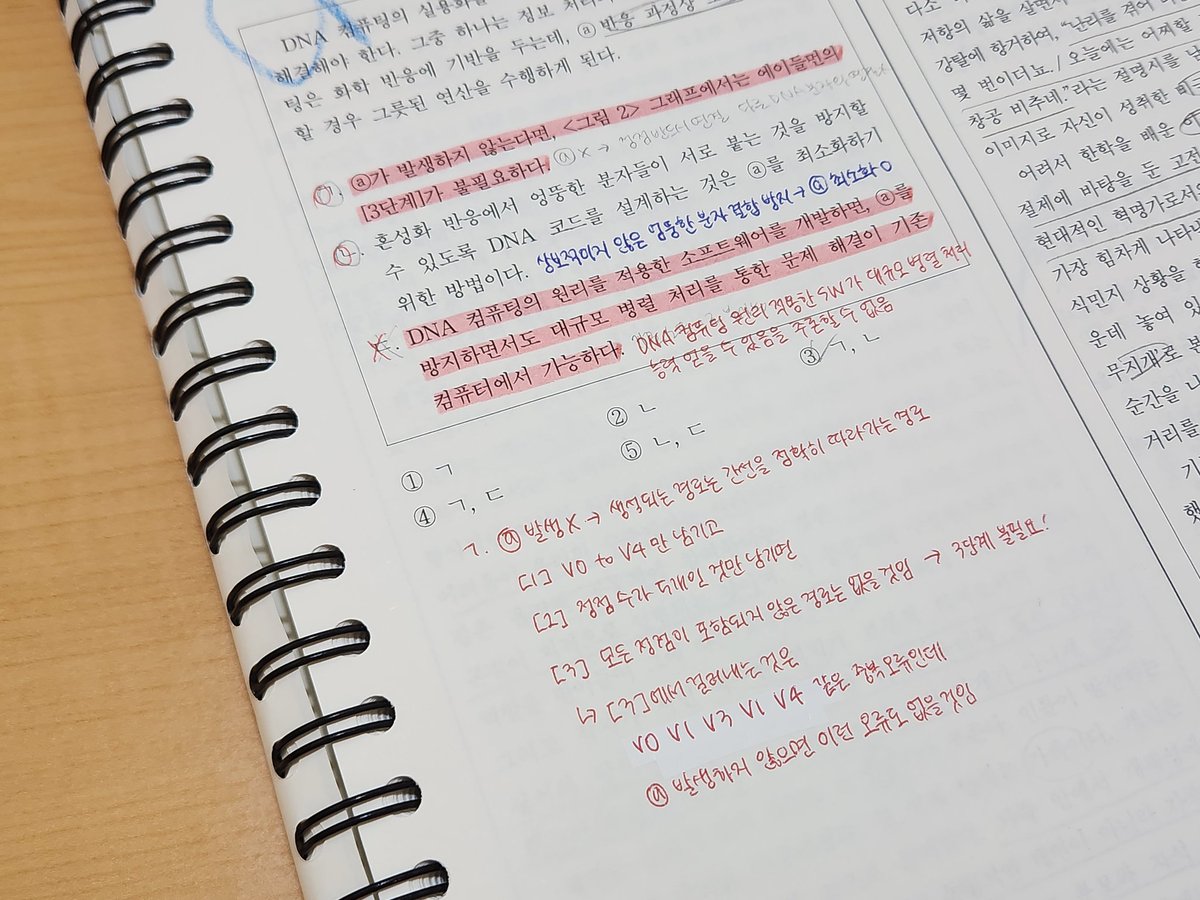 DNA 컴퓨팅의 실용화를
해결해야 한다. 그중 하나는 정보 처리
팅은 화학 반응에 기반을 두는데, ⓐ 반응 과정상
할 경우 그릇된 연산을 수행하게 된다.
ㄱ. ⓐ가 발생하지 않는다면, <그림 2> 그래프에서는 에이들먼의
[3단계]가 불필요하다. ⓐ X →
ㄴ. 혼성화 반응에서 엉뚱한 분자들이 서로 붙는 것을 방지할
수 있도록 DNA 코드를 설계하는 것은 ⓐ를 최소화하기
위한 방법이다. 상보적이지 않은 엉뚱한 분자 결합 방지 → ⓐ 최소화 O
ㄷ. DNA 컴퓨팅의 원리를 적용한 소프트웨어를 개발하면, ⓐ를
방지하면서도 대규모 병렬 처리를 통한 문제 해결이 기존
컴퓨터에서 가능하다. DNA 컴퓨팅 원리 적용한 SW가 대규모 병렬 처리
능력 얻을 수 있음을 추론할 수 없음
① ㄱ
② ㄴ
③ ㄱ, ㄴ
④ ㄱ, ㄷ
⑤ ㄴ, ㄷ
ㄱ. ⓐ 발생 X → 생성되는 경로는 간선을 정확히 따라가는 경로
[1] V0 to V4만 남기고
[2] 정점 수가 5개인 것만 남기면
[3] 모든 정점이 포함되지 않은 경로는 없을 것임 → 3단계 불필요!
↳ [3]에서 걸러내는 것은
V0 V1 V3 V1 V4 같은 중복 오류인데
ⓐ 발생하지 않으면 이런 오류도 없을 것임
다소
저항의 삶을 살면서
강탈에 항거하여, “난리를 겪어
몇 번이더뇨. / 오늘에는 어찌할
창공 비추네.”라는 절명시를
이미지로 자신이 성취한
어려서 한학을 배운
절제에 바탕을 둔 고전
현대적인 혁명가로서
가장 힘차게 나타
식민지 상황을
운데 놓여 있
무지개’로
순간을
거리를
기
했